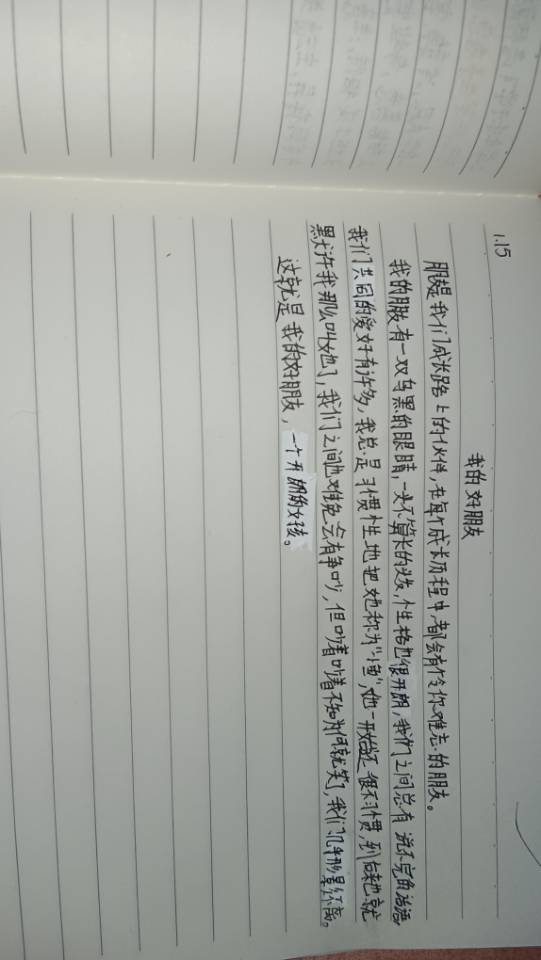 1.15
我的好朋友
朋友是我们成长路上的伙伴,在每个成长历程中都会有个令你难忘的朋友。
我的朋友有一双乌黑的眼睛,一头不算长的头发,性格也很开朗,我们之间总有说不完的话语
我们共同的爱好有许多,我总是习惯性地把她称为“小鱼”,她一开始还很不习惯,到后来她就
默许我那么叫她了,我们之间也难免会有争吵,但吵着吵着不知为何就笑了,我们几乎形影不离。
这就是我的好朋友,一个开朗的女孩。